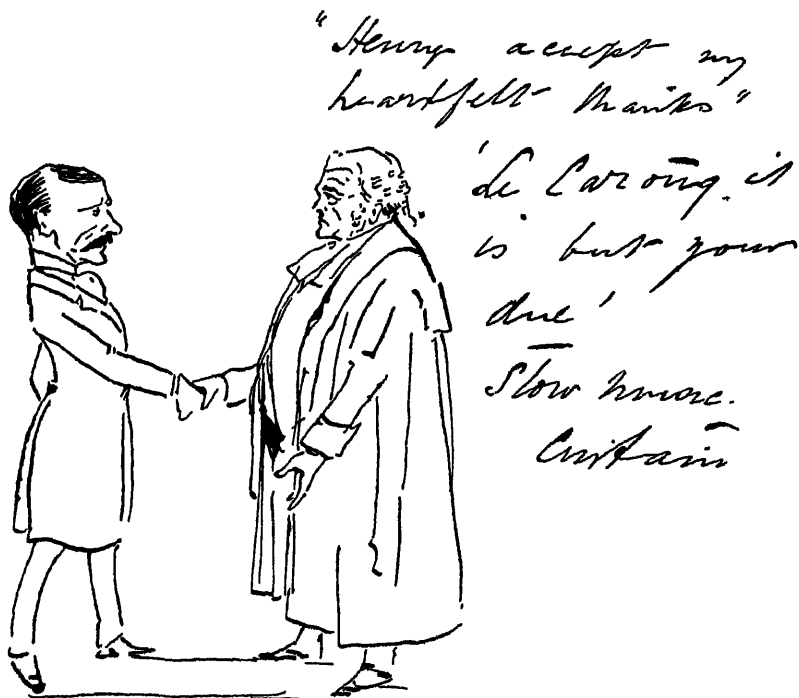 "Henry accept my
heartfelt thanks"
'Le Caron, it
is but your
due'
Slow music.
Curtain